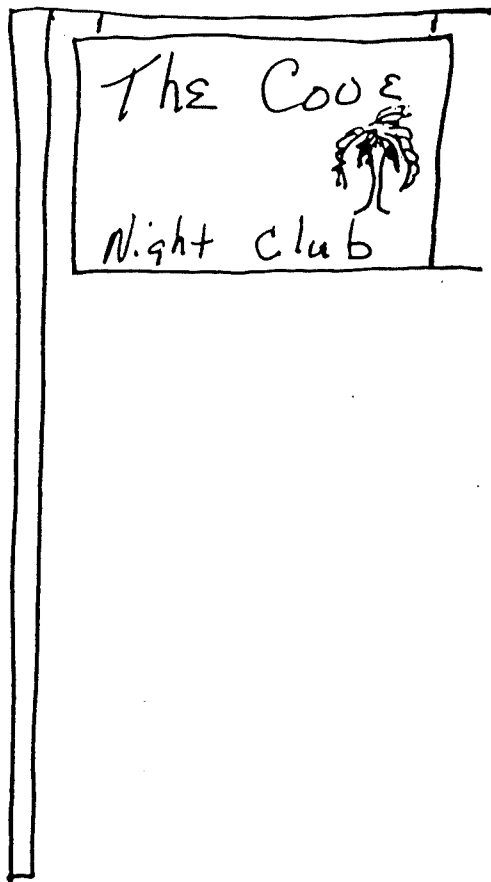 The Cove
Night Club